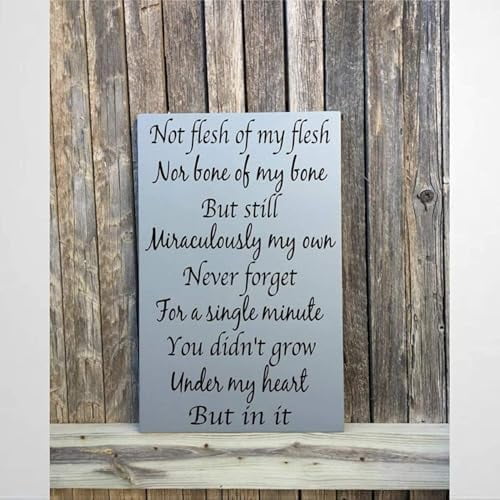 Not flesh of my flesh
Nor bone of my bone
But still
Miraculously my own
Never forget
For a single minute
You didn't grow
Under my heart
But in it